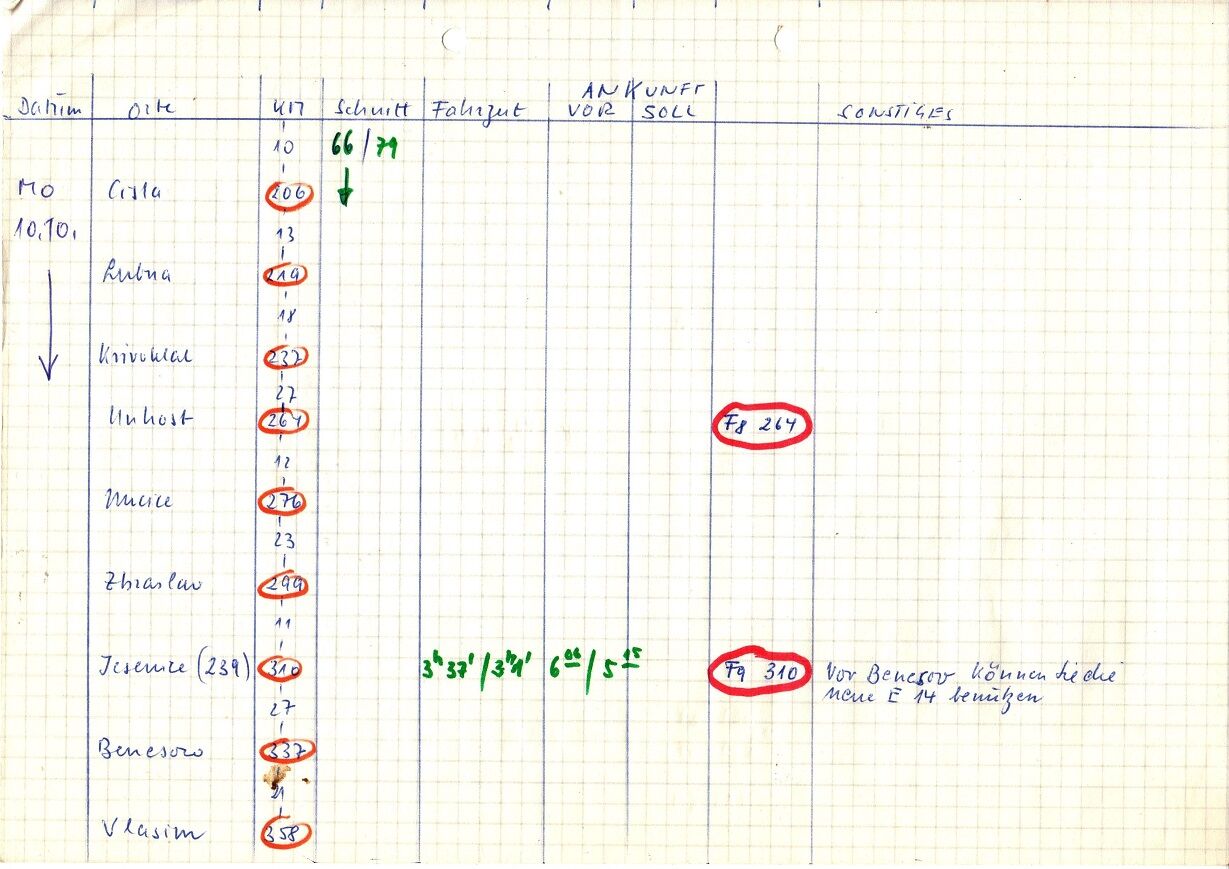 ANKUNFT
Datum Orte KM Schnitt Fahrzeit VOR SOLL SONSTIGES
10 66/79
MO Cista 206
10.10. 13
Lubna 219
18
Krivoklat 237
27
Unhost 264 F8 264
12
Nucice 276
23
Zbraslav 299
11
Jesenice (239) 310 3h 37'/3h 1' 6 06/5 15 F9 310 Vor Benesov können Sie die
27 neue E 14 benützen
Benesov 337
21
Vlasim 358